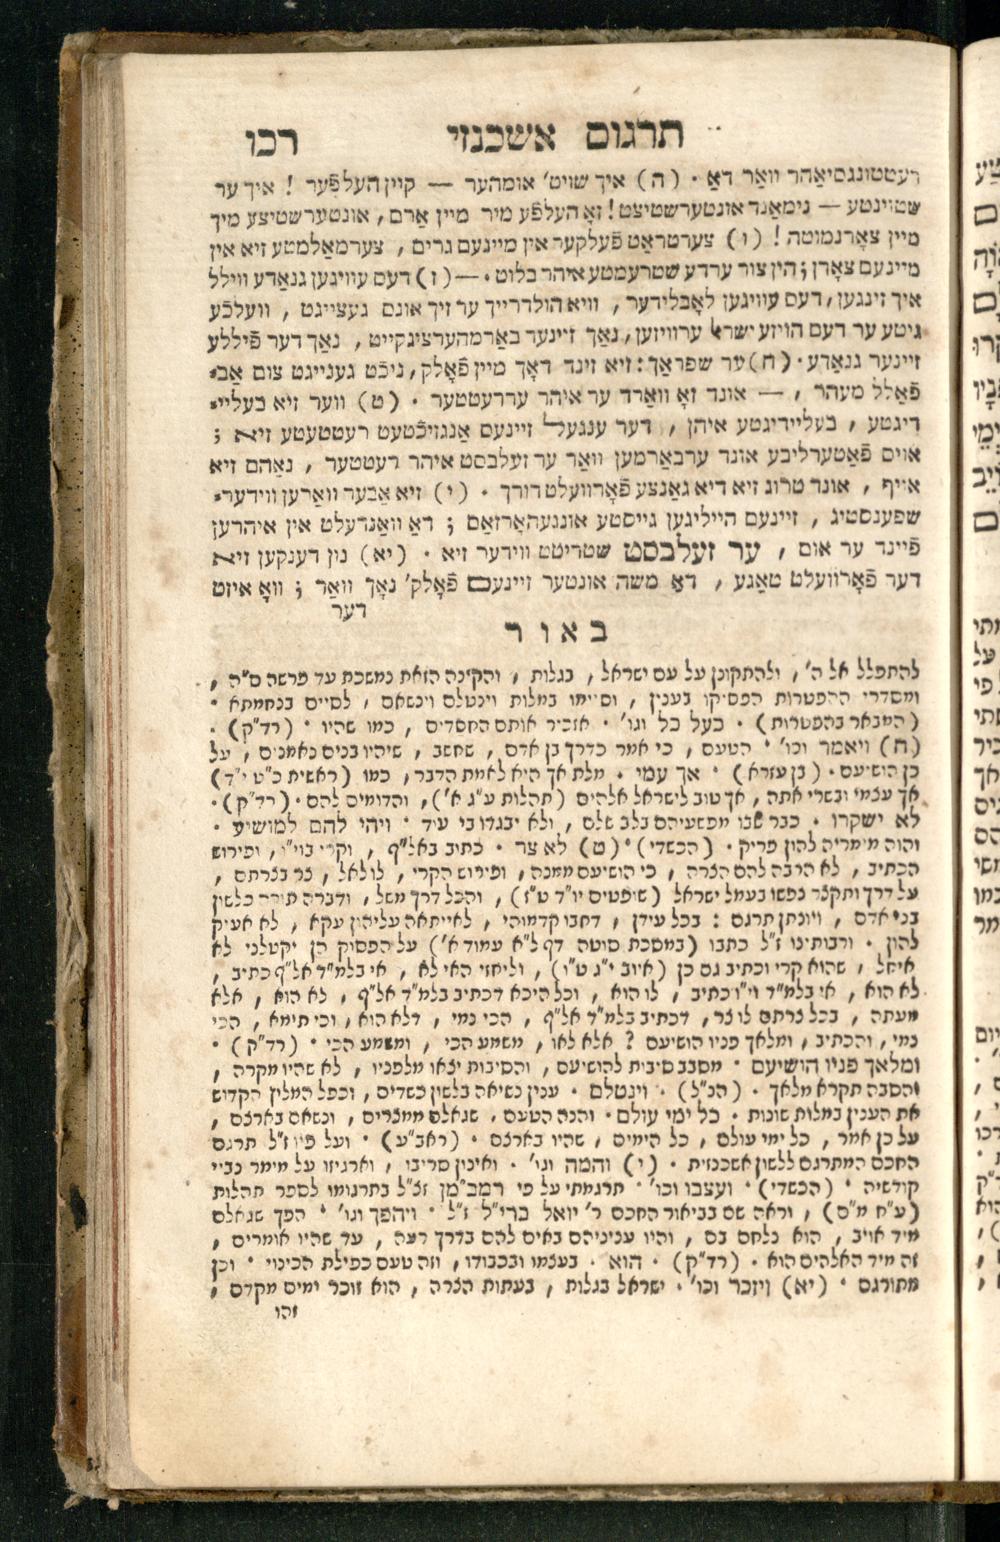 תרגום אשכנזי רכו
רעטטונגסיאהר וואַר דאַ . (ה) איך שויט' אומהער — קיין העלפֿער ! איך ער
שטוינטע — נימאַנד אונטערשטיצט! זאָ העלפֿע מיר מיין אַרם , אונטערשטיצע מיך
מיין צאָרנמוטה ! (ו) צערטראַט פֿעלקער אין מיינעם גרים , צערמאַלמטע זיא אין
מיינעם צאָרן ; הין צור ערדע שטרעמטע איהר בלוט . — (ז) דעם עוויגען גנאַדע ווילל
איך זינגען , דעם עוויגען לאָבלידער , וויא הולדרייך ער זיך אונס געצייגט , וועלכֿע
גיטע ער דעם הויזע ישראל ערוויזען , נאַך זיינער באַרמהערציגקייט , נאַך דער פֿיללע
זיינער גנאַדע . (ח) ער שפּראַך : זיא זינד דאָך מיין פֿאָלק , ניכֿט גענייגט צום אַב־
פֿאַלל מעהר , — אונד זאָ וואַרד ער איהר עררעטטער . (ט) ווער זיא בעליי־
דיגטע , בעליידיגטע איהן , דער ענגעל זיינעם אַנגזיכֿטעט רעטטעטע זיא ;
אויס פֿאַטערליבע אונד ערבאַרמען וואַר ער זעלבסט איהר רעטטער , נאַהם זיא
אויף , אונד טרוג זיא דיא גאַנצע פֿאָרוועלט דורך . (י) זיא אַבער וואַרען ווידער־
שפענסטיג , זיינעם הייליגען גייסטע אונגעהאָרזאַם ; דאַ וואַנדעלט אין איהרען
פֿיינד ער אום , ער זעלבסט שטריטט ווידער זיא . (יא) נון דענקען זיא
דער פֿאָרוועלט טאַגע , דאַ משה אונטער זיינעם פֿאָלק' נאָך וואַר ; וואָ איזט
דער
באור
להתפלל אל ה' , ולהתקונן על עם ישראל , בגלות , והקינה הזאת נמשכת עד פרשה ס"ה ,
ומסדרי ההפטרות הפסיקו בענין , וסיימו במלות וינטלם וינשאם , לסיים בנחמתא .
(המבאר בהפטרות) . כעל כל וגו' . אזכיר אותם החסדים , כמו שהיו . (רד"ק) .
(ח) ויאמר וכו' . הטעם , כי אמר כדרך בן אדם , שחשב , שיהיו בנים נאמנים , על
כן הושיעם . (בן עזרא) . אך עמי . מלת אך היא לאמת הדבר , כמו (ראשית כ"ט י"ד)
אך עצמי ובשרי אתה , אך טוב לישראל אלהים (תהלות ע"ג א') , והדומים להם . (רד"ק) .
לא ישקרו . כבר שבו מפשעיהם בלב שלם , ולא יבגדו בי עוד . ויהי להם למושיע .
והוה מימריה להון פריק . (הכשדי) . (ט) לא צר . כתיב באל"ף , וקרי בוי"ו , ופירוש
הכתיב , לא הרבה להם הצרה , כי הושיעם ממנה , ופירוש הקרי , לו לאל , צר בצרתם ,
על דרך ותקצר נפשו בעמל ישראל (שופטים יו"ד ט"ז) , והכל דרך משל , ודברה תורה כלשון
בני אדם , ויונתן תרגם : בכל עידן , דחבו קדמוהי , לאייתאה עליהון עקא , לא אעיק
להון . ורבותינו ז"ל כתבו (במסכת סוטה דף ל"א עמוד א') על הפסוק הן יקטלני לא
איחל , שהוא קרי וכתיב גם כן (איוב י"ג ט"ו) , וליחזי האי לא , אי בלמ"ד אל"ף כתיב ,
לא הוא , אי בלמ"ד וי"ו כתיב , לו הוא , וכל היכא דכתיב בלמ"ד אל"ף , לא הוא , אלא
מעתה , בכל צרתם לו צר , דכתיב בלמ"ד אל"ף , הכי נמי , דלא הוא , וכי תימא , הכי
נמי , והכתיב , ומלאך פניו הושיעם ? אלא לאו , משמע הכי , ומשמע הכי . (רד"ק) .
ומלאך פניו הושיעם . מסבב סיבית להושיעם , והסיבות יצאו מלפניו , לא שהיו מקרה ,
והסבה תקרא מלאך . (הנ"ל) . וינטלם . ענין נשיאה בלשון כשדים , וכפל המליץ הקדוש
את הענין במלות שונות . כל ימי עולם . והנה הטעם , שגאלם ממצרים , ונשאם בארצם ,
על כן אמר , כל ימי עולם , כל הימים , שהיו בארצם . (ראב"ע) . ועל פיו ז"ל תרגם
החכם המתרגם ללשון אשכנזית . (י) והמה וגו' . ואינון סריבו , וארגיזו על מימר נביי
קודשיה . (הכשדי) . ועצבו וכו' . תרגמתי על פי רמב"מן זצ"ל בתרגומו לספר תהלות
(ע"ח מ"ם) , וראה שם בביאור החכם ר' יואל ברי"ל ז"ל . ויהפך וגו' . הפך שגאלם
מיד אויב , הוא נלחם בם , והיו עניניהם באים להם בדרך רעה , עד שהיו אומרים ,
זה מיד האלהים הוא . (רד"ק) . הוא . בעצמו ובכבודו , וזה טעם כפילת הכינוי . וכן
מתורגם . (יא) ויזכר וכו' . ישראל בגלות , בעתות הצרה , הוא זוכר ימים מקדם ,
זהו